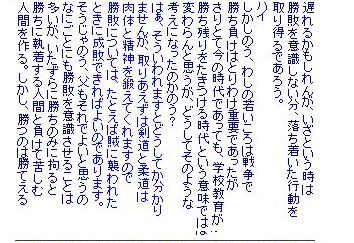 遅れるかもしれんが、いざという時は
勝敗を意識しない分、落ち着いた行動を
取り得るであろう。
ハイ
しかしのう、わしの若いころは戦争で
勝ち負けはとりわけ重要であったが
さりとて今の時代であっても、学校教育が:
勝ち残りをたまつける時代という意味では
変わらんと思うが、どうしてそのような
考えになったのかのう?
はぁ、そういわれますとどうしてか分かり
ませんが、取りあえずは剣道と柔道は
肉体と精神を鍛えてくれますので
勝敗については、たとえば賊に襲われた
ときに成敗できればよいのであります。
そうじゃのう、父もそれでよいと思うの
なにごとにも勝敗を意識させることは
多いが、いたずらに勝ちのみに拘ると
勝ちに執着する人間と負けて苦しむ
人間を作る。しかし、勝つのは勝てえる